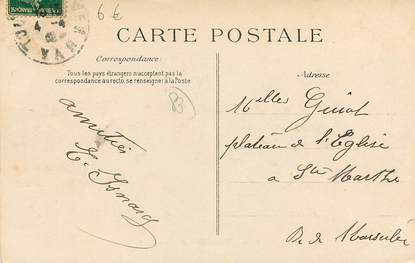 6 €
CARTE POSTALE
Correspondance:
Tous les pays étrangers n'acceptent pas la
correspondance au recto, se renseigner à la Poste
83
amitiés
Isnard
Adresse
Melles Guiol
plateau de l'Eglise
a Ste Marthe